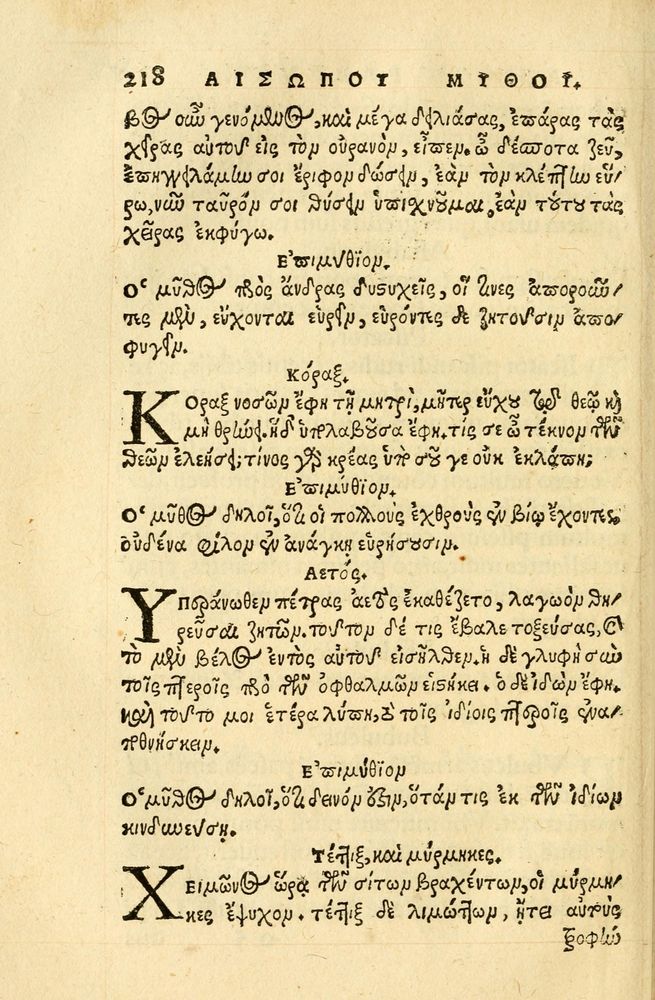 218 ΑΙΣΩΠΟΥ ΜΥΘΟΙ.
βος οὖν γενόμενος, καὶ μέγα δειλιάσας, ἐπάρας τὰς
χεῖρας αὐτοῦ εἰς τὸν οὐρανὸν, εἶπεν. ὦ δέσποτα ζεῦ,
ἐπηγγειλάμην σοι ἔριφον δώσειν, ἐὰν τὸν κλέπτην εὕ/
ρω, νῦν ταῦρόν σοι θύσειν ὑπισχνοῦμαι, ἐὰν τούτου τὰς
χεῖρας ἐκφύγω.
Ἐπιμύθιον.
Ὁ μῦθος πρὸς ἄνδρας δυστυχεῖς, οἵ τινες ἀποροῦν/
τες μὲν, εὔχονται εὑρεῖν, εὑρόντες δὲ ζητοῦσιν ἀπο/
φυγεῖν.
Κόραξ.
ΚΟραξ νοσῶν ἔφη τῇ μητρὶ, μῆτερ εὔχου τῷ θεῷ καὶ
μὴ θρήνει. ἡ δ' ὑπολαβοῦσα ἔφη. τίς σε ὦ τέκνον τῶν
θεῶν ἐλεήσει; τίνος γὰρ κρέας ὑπὸ σοῦ γε οὐκ ἐκλάπη;
Ἐπιμύθιον.
Ὁ μῦθος δηλοῖ, ὅτι οἱ πολλοὺς ἐχθροὺς ἐν βίῳ ἔχοντες,
οὐδένα φίλον ἐν ἀνάγκῃ εὑρήσουσιν.
Ἀετός.
ΥΠεράνωθεν πέτρας ἀετὸς ἐκαθέζετο, λαγωὸν θη/
ρεῦσαι ζητῶν. τοῦτον δέ τις ἔβαλε τοξεύσας, καὶ
τὸ μὲν βέλος ἐντὸς αὐτοῦ εἰσῆλθεν. ἡ δὲ γλυφὴ σὺν
τοῖς πτεροῖς πρὸ τῶν ὀφθαλμῶν εἱστήκει. ὁ δὲ ἰδὼν ἔφη.
καὶ τοῦτό μοι ἑτέρα λύπη, τὸ τοῖς ἰδίοις πτεροῖς ἐνα/
ποθνήσκειν.
Ἐπιμύθιον
Ὁ μῦθος δηλοῖ, ὅτι δεινόν ἐστιν, ὅταν τις ἐκ τῶν ἰδίων
κινδυνεύσῃ.
Τέττιξ, καὶ μύρμηκες.
ΧΕιμῶνος ὥρᾳ τῶν σίτων βραχέντων, οἱ μύρμη/
κες ἔψυχον. τέττιξ δὲ λιμώττων, ᾔτει αὐτοὺς
τροφὴν